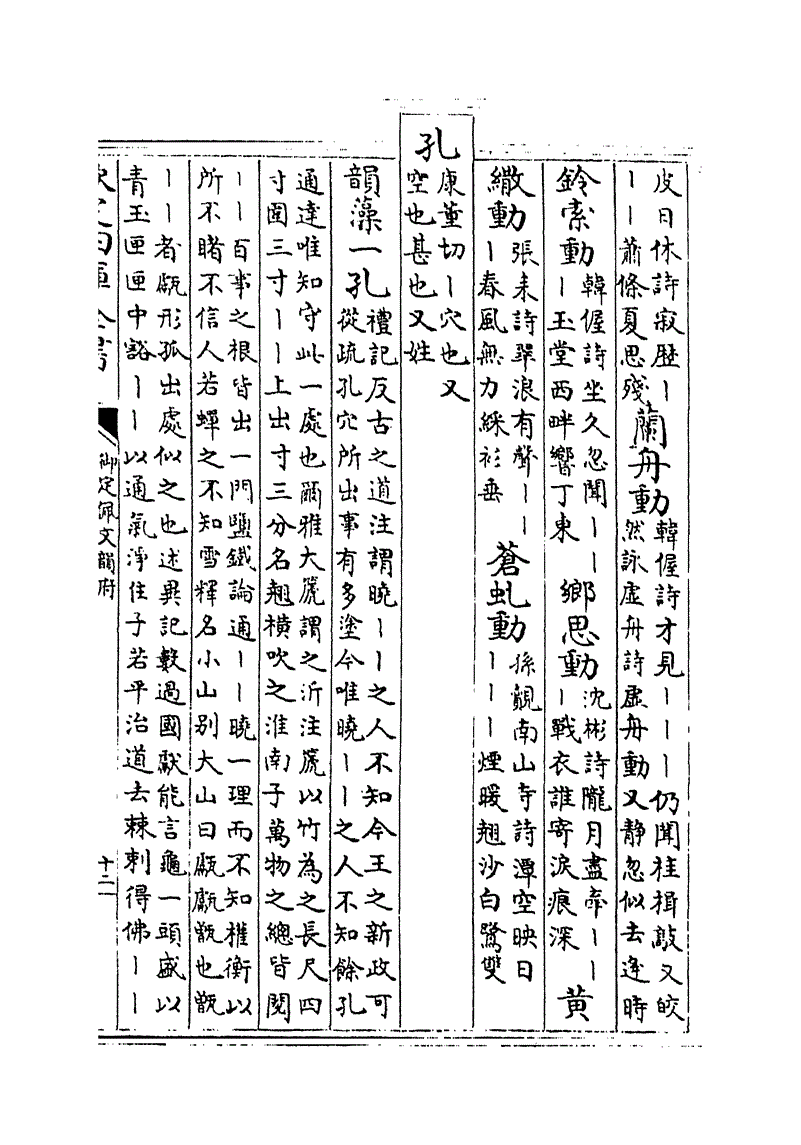 皮日休詩寂歴丨
丨丨蕭條夏思殘
蘭舟動
韓偓詩才見丨丨丨仍聞桂楫敲又皎
然詠虛舟詩虛舟動又静忽似去逢時
鈴索動
韓偓詩坐久忽聞丨丨
丨玉堂西畔響丁東
鄉思動
沈彬詩隴月盡牽丨丨
丨戰衣誰寄淚痕深
黄
繖動
張耒詩翠浪有聲丨丨
丨春風無力綵衫垂
蒼虬動
孫覿南山寺詩潭空映日
丨丨丨煙暖翹沙白鷺雙
孔
康董切丨穴也又
空也甚也又姓
韻藻一孔
禮記反古之道注謂曉丨丨之人不知今王之新政可
從疏孔穴所出事有多塗今唯曉丨丨之人不知餘孔
通達唯知守此一處也爾雅大篪謂之沂注篪以竹為之長尺四
寸圍三寸丨丨上出寸三分名翹橫吹之淮南子萬物之總皆閱
丨丨百事之根皆出一門鹽鐵論通丨丨曉一理而不知權衡以
所不睹不信人若蟬之不知雪釋名小山别大山曰甗甗甑也甑
丨丨者甗形孤出處似之也述異記數過國獻能言龜一頭盛以
青玉匣匣中豁丨丨以通氣淨住子若平治道去棘刺得佛丨丨
欽定四庫全書
御定佩文韻府
十二